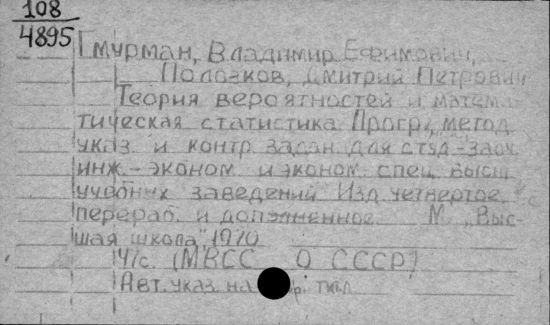 108
4895
Гмурман, Владимир Ефимович,
Полозков, Дмитрий Петрович
Теория вероятностей и матема-
тическая статистика. Прогр., метод.
указ. и контр. задан. для студ.-заоч.
инж.-эконом. и эконом. спец. высш.
учебных заведений. Изд. четвертое,
перераб. и дополненное. М., „Выс-
шая школа", 1970
с. (МВСС О СССР)
Авт. указ. на тит.